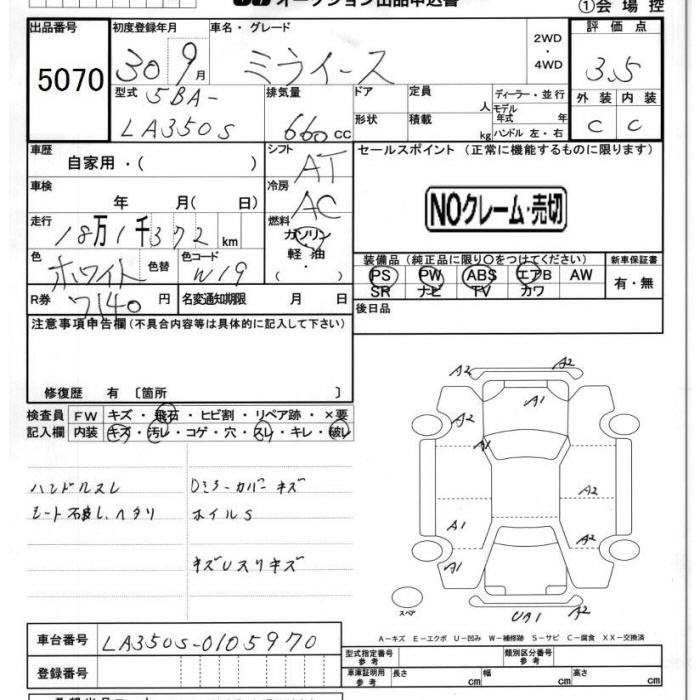 オークション出品申込書
①会場控
出品番号 初度登録年月 車名・グレード 評価点
5070 30 9月 ミライース 2WD・4WD 3.5
型式 5BA-LA350S 排気量 660cc ドア 定員 人 ディーラー・並行
形状 積載 kg モデル年式 年 ハンドル 左・右
外装 内装
C C
車歴 自家用・( ) シフト AT
セールスポイント(正常に機能するものに限ります)
車検 年 月( 日) 冷房 AC
NOクレーム・売切
走行 18万1千372km 燃料 ガソリン・軽油・( )
色 ホワイト 色替 色コード W19
装備品(純正品に限り○をつけてください) 新車保証書
PS PW ABS エアB AW 有・無
SR ナビ TV カワ
R券 7140円 名変通知期限 月 日
後日品
注意事項申告欄(不具合内容等は具体的に記入して下さい)
修復歴 有 〔箇所 〕
検査員記入欄 FW キズ・飛石・ヒビ割・リペア跡・×要
内装 キズ・汚レ・コゲ・穴・スレ・キレ・破レ
ハンドルスレ
シート汚れ、ヘタリ
Dミラーカバーキズ
ホイルS
キズUスリキズ
A2 A2
A1
A2
A2
A1 A2
A1
UA1 A2
スペア
A-キズ E-エクボ U-凹み W-補修跡 S-サビ C-腐食 XX-交換済
車台番号 LA350S-0105970
登録番号
型式指定番号参考 類別区分番号参考
車庫証明用参考 長さ cm 幅 cm 高さ cm